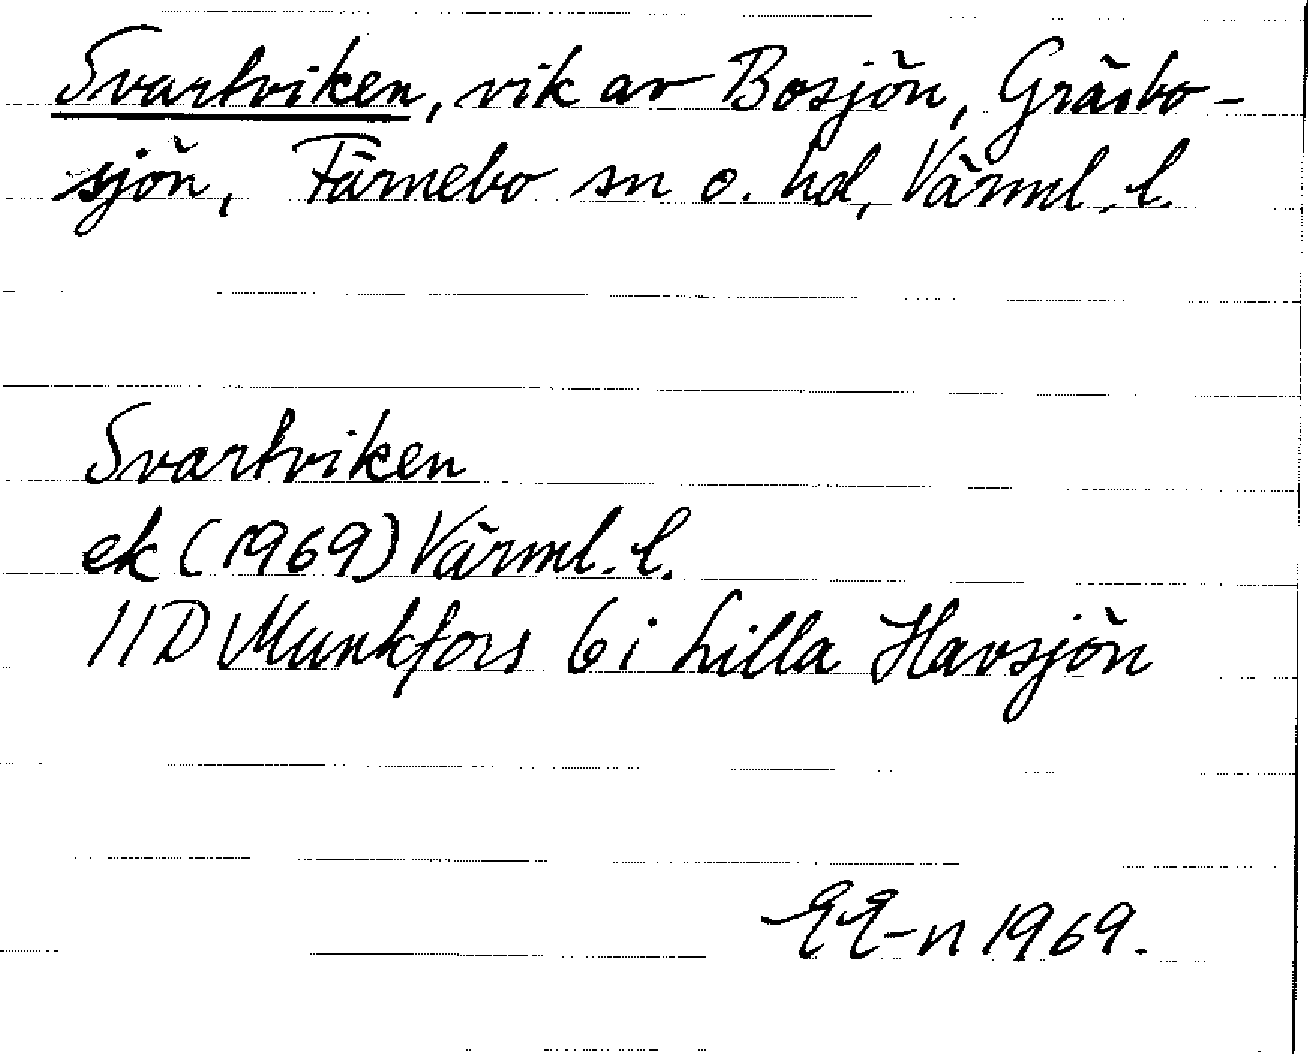 Svartviken, vik av Bosjön, Gräsbo-
sjön, Färnebo sn o. hd, Värml. l.
Svartviken
ek (1969) Värml. l.
11D Munkfors 6i Lilla Havsjön
EE-n 1969.